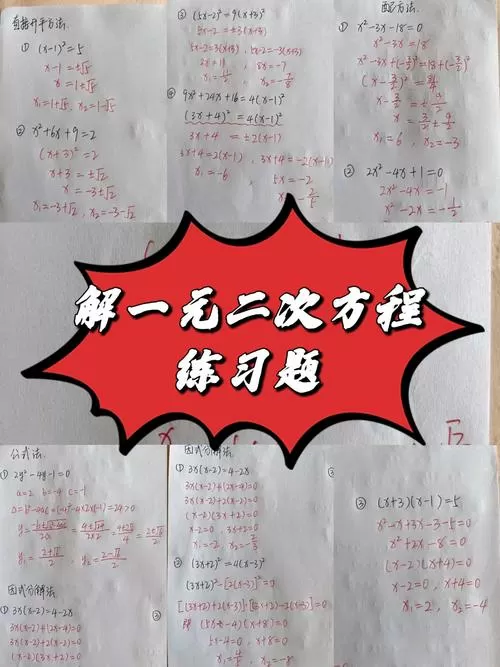 直接开平方法.
① (x-1)²=5
x-1=±√5
x=1±√5
x₁=1+√5, x₂=1-√5
② x²+6x+9=2
(x+3)²=2
x+3=±√2
x=-3±√2
x₁=-3+√2, x₂=-3-√2
③ (5x-2)²=9(x+3)²
5x-2=±3(x+3)
5x-2=3(x+3), 5x-2=-3(x+3)
2x=11, 8x=-7
④ 9x²+24x+16=4(x-1)²
(3x+4)²=4(x-1)²
3x+4=±2(x-1)
3x+4=2(x-1), 3x+4=-2(x-1)
x₁=-6
5x=-2
配方法.
① x²-3x-18=0
x²-3x=18
x²-3x+(-3/2)²=18+(-3/2)²
(x-3/2)²=81/4
x-3/2=±9/2
x=3/2±9/2
x₁=6, x₂=-3
② 2x²-4x+1=0
2x²-4x=-1
x²-2x=-1/2
解一元二次方程
练习题
公式法.
① 2y²-4y-1=0
a=2 b=-4 c=-1
Δ=b²-4ac=(-4)²-4×2×(-1)=24>0
y₁=(2+√6)/2, y₂=(2-√6)/2
因式分解法
① 3x(x-2)=4-2x
3x(x-2)+(2x-4)=0
3x(x-2)+2(x-2)=0
(x-2)(3x+2)=0
因式分解法.
① 3x(x-2)=4-2x
3x(x-2)+(2x-4)=0
3x(x-2)+2(x-2)=0
(x-2)(3x+2)=0
x-2=0, 3x+2=0
② (3x+2)²=4(x-3)²
(3x+2)²-[2(x-3)]²=0
[(3x+2)+2(x-3)][(3x+2)-2(x-3)]=0
即 (5x-4)(x+8)=0
5x-4=0, x+8=0
x₁=4/5, x₂=-8
③
③ (x+3)(x-1)=5
x²-x+3x-3-5=0
x²+2x-8=0
(x-2)(x+4)=0
x-2=0, x+4=0
x₁=2, x₂=-4